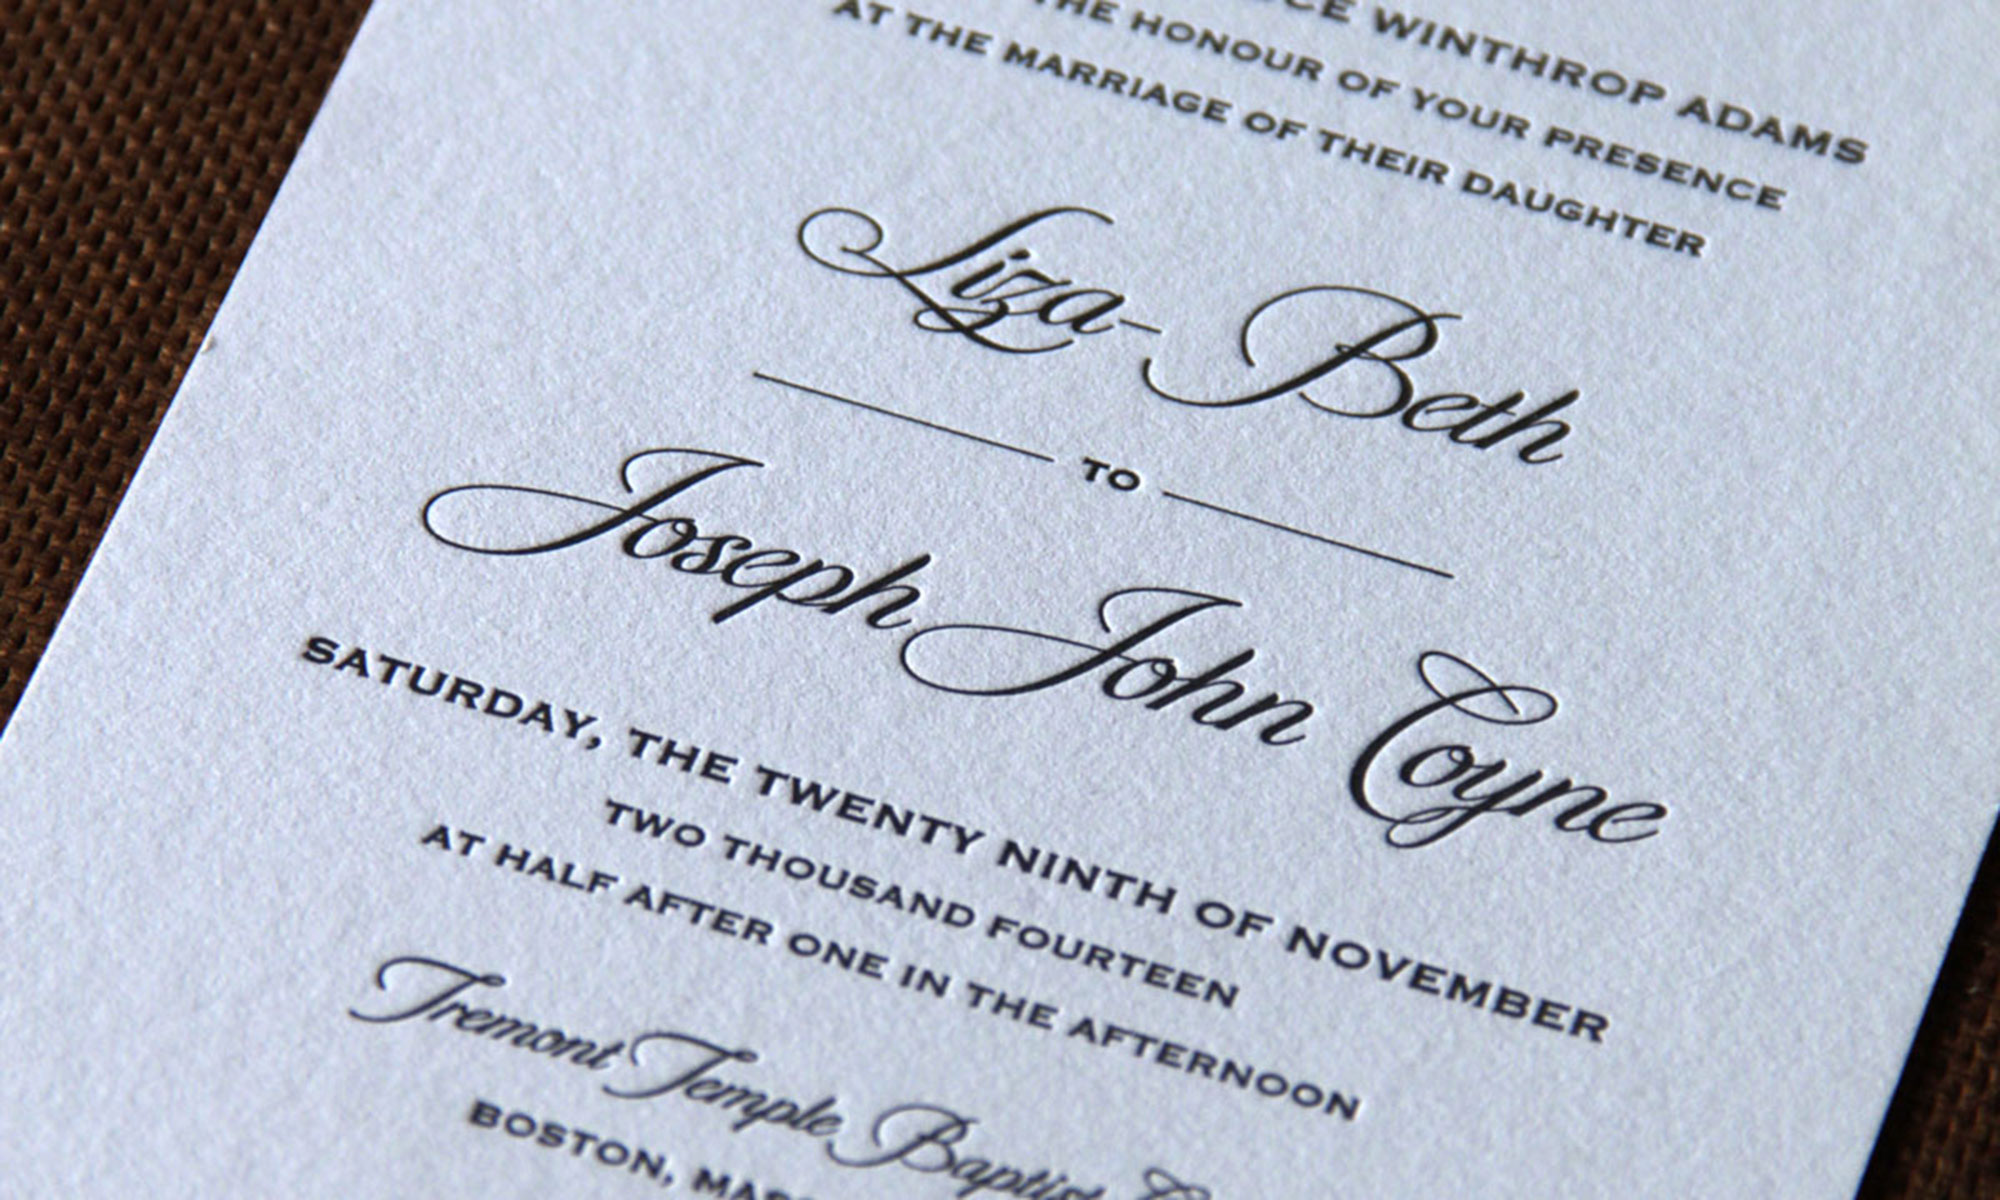 WINTHROP ADAMS
THE HONOUR OF YOUR PRESENCE
AT THE MARRIAGE OF THEIR DAUGHTER
Liza-Beth
TO
Joseph John Coyne
SATURDAY, THE TWENTY NINTH OF NOVEMBER
TWO THOUSAND FOURTEEN
AT HALF AFTER ONE IN THE AFTERNOON
Tremont Temple Baptist
BOSTON,